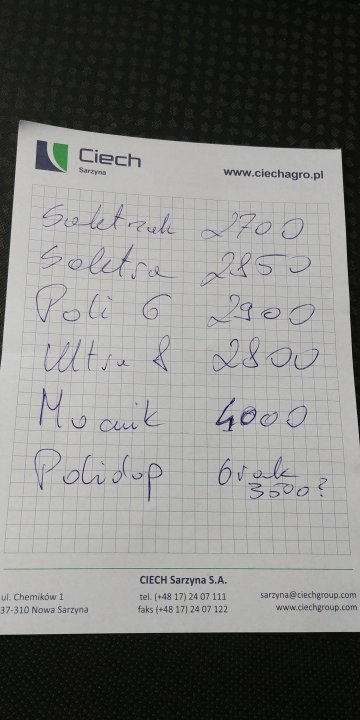 Ciech
Sarzyna
www.ciechagro.pl
Saletrzak 2700
Saletra 2850
Poli 6 2900
Ultra 8 2800
Mocznik 4000
Polidap brak
3500?
CIECH Sarzyna S.A.
ul. Chemików 1 tel. (+48 17) 24 07 111 sarzyna@ciechgroup.com
37-310 Nowa Sarzyna faks (+48 17) 24 07 122 www.ciechgroup.com